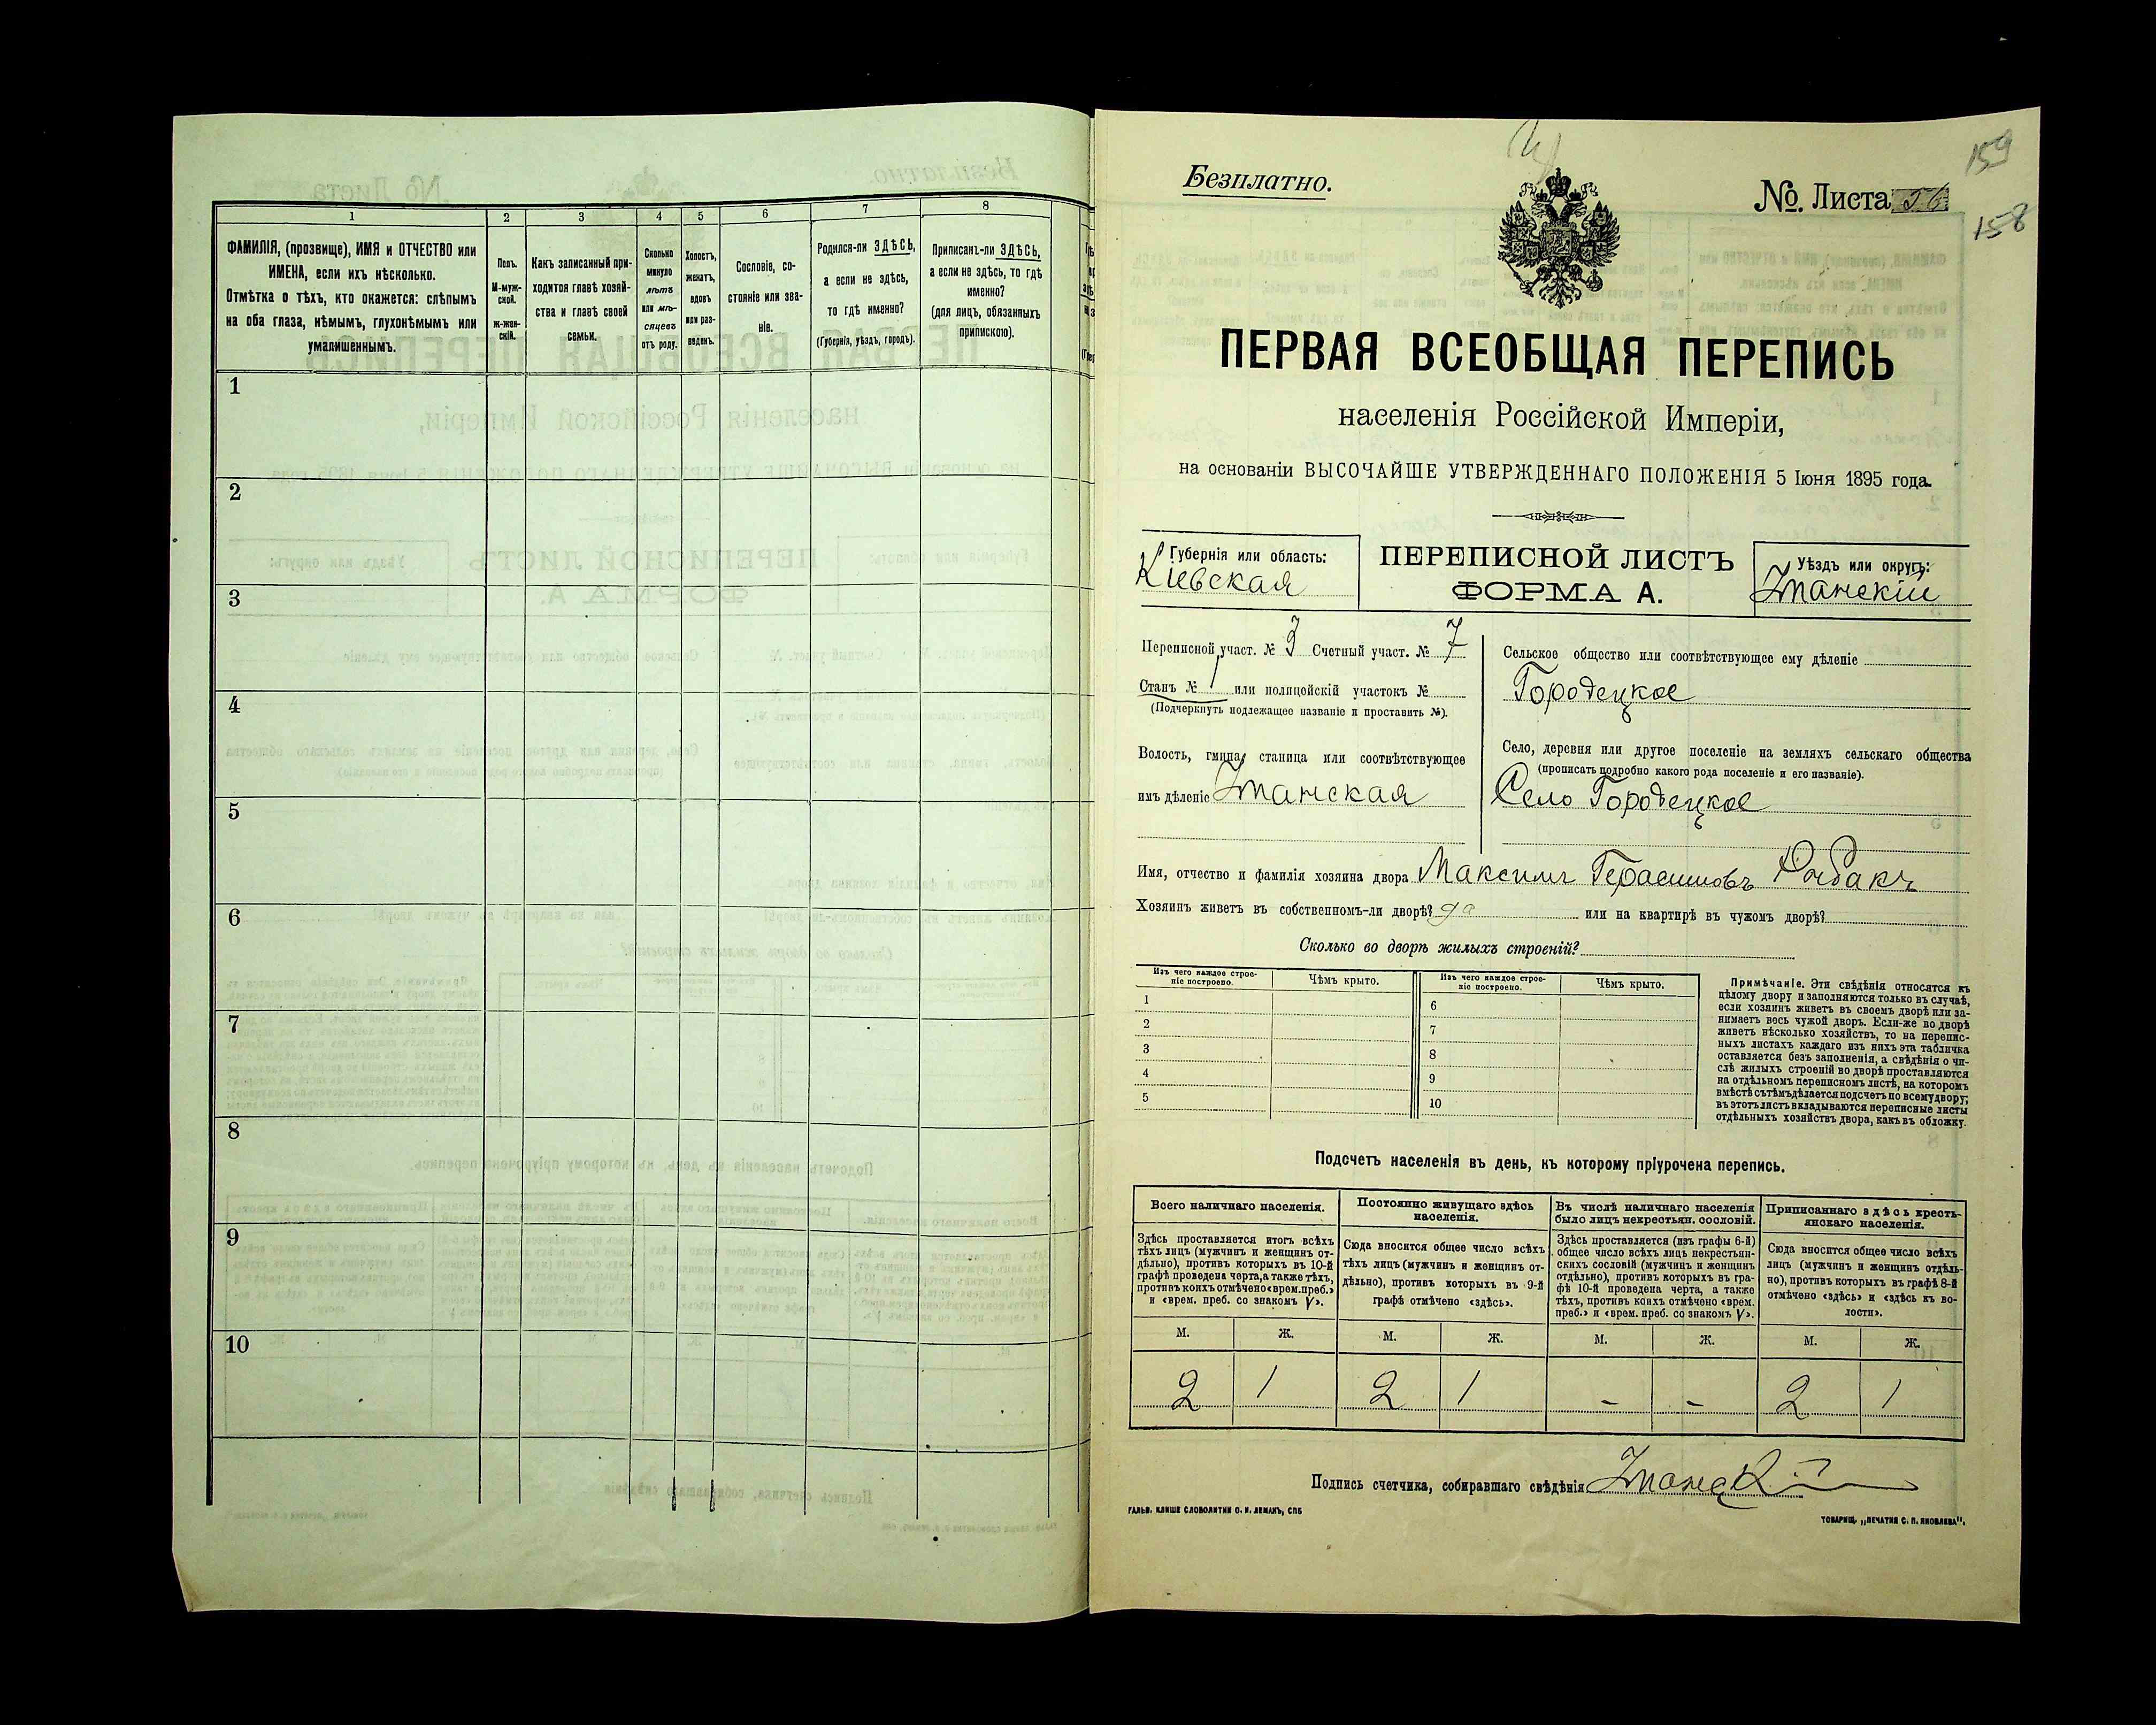 1
2
3
4
5
6
7
8
ФАМИЛІЯ, (прозвище), ИМЯ и ОТЧЕСТВО или
ИМЕНА, если ихъ нѣсколько.
Отмѣтка о тѣхъ, кто окажется: слѣпымъ
на оба глаза, нѣмымъ, глухонѣмымъ или
умалишеннымъ.
Полъ.
М-муж-
ской.
ж-жен-
скій.
Какъ записанный при-
ходится главѣ хозяй-
ства и главѣ своей
семьи.
Сколько
минуло
лѣтъ
или мѣ-
сяцевъ
отъ роду.
Холостъ,
женатъ,
вдовъ
или раз-
веденъ.
Сословіе, со-
стояніе или зва-
ніе.
Родился-ли ЗДѢСЬ,
а если не здѣсь,
то гдѣ именно?
(Губернія, уѣздъ, городъ).
Приписанъ-ли ЗДѢСЬ,
а если не здѣсь, то гдѣ
именно?
(для лицъ, обязанныхъ
припискою).
1
2
3
4
5
6
7
8
9
10
Безплатно.
№. Листа 56
159
158
ПЕРВАЯ ВСЕОБЩАЯ ПЕРЕПИСЬ
населенія Россійской Имперіи,
на основаніи ВЫСОЧАЙШЕ УТВЕРЖДЕННАГО ПОЛОЖЕНІЯ 5 Іюня 1895 года.
Губернія или область:
Кіевская
ПЕРЕПИСНОЙ ЛИСТЪ
ФОРМА А.
Уѣздъ или округъ:
Уманскій
Переписной участ. № 3 Счетный участ. № 7
Станъ № 1 или полицейскій участокъ №
(Подчеркнуть подлежащее названіе и проставить №).
Волость, гмина, станица или соотвѣтствующее
имъ дѣленіе Уманская
Сельское общество или соотвѣтствующее ему дѣленіе
Городецкое
Село, деревня или другое поселеніе на земляхъ сельскаго общества
(прописать подробно какого рода поселеніе и его названіе).
Село Городецкое
Имя, отчество и фамилія хозяина двора Максимъ Герасимовъ Рыбакъ
Хозяинъ живетъ въ собственномъ-ли дворѣ? да или на квартирѣ въ чужомъ дворѣ?
Сколько во дворѣ жилыхъ строеній?
Изъ чего каждое строе-
ніе построено.
Чѣмъ крыто.
Изъ чего каждое строе-
ніе построено.
Чѣмъ крыто.
1
2
3
4
5
6
7
8
9
10
Примѣчаніе. Эти свѣдѣнія относятся къ
цѣлому двору и заполняются только въ случаѣ,
если хозяинъ живетъ въ своемъ дворѣ или за-
нимаетъ весь чужой дворъ. Если-же во дворѣ
живетъ нѣсколько хозяйствъ, то на перепис-
ныхъ листахъ каждаго изъ нихъ эта табличка
оставляется безъ заполненія, а свѣдѣнія о чи-
слѣ жилыхъ строеній во дворѣ проставляются
на отдѣльномъ переписномъ листѣ, на которомъ
вмѣстѣ съ тѣмъ дѣлается подсчетъ по всему двору;
въ этотъ листъ вкладываются переписные листы
отдѣльныхъ хозяйствъ двора, какъ въ обложку.
Подсчетъ населенія въ день, къ которому пріурочена перепись.
Всего наличнаго населенія.
Здѣсь проставляется итогъ всѣхъ
тѣхъ лицъ (мужчинъ и женщинъ от-
дѣльно), противъ которыхъ въ 10-й
графѣ проведена черта, а также тѣхъ,
противъ коихъ отмѣчено «врем. преб.»
и «врем. преб. со знакомъ V».
Постоянно живущаго здѣсь
населенія.
Сюда вносится общее число всѣхъ
тѣхъ лицъ (мужчинъ и женщинъ от-
дѣльно), противъ которыхъ въ 9-й
графѣ отмѣчено «здѣсь».
Въ числѣ наличнаго населенія
было лицъ некрестьян. сословій.
Здѣсь проставляется (изъ графы 6-й)
общее число всѣхъ лицъ некрестьян-
скихъ сословій (мужчинъ и женщинъ
отдѣльно), противъ которыхъ въ гра-
фѣ 10-й проведена черта, а также
тѣхъ, противъ коихъ отмѣчено «врем.
преб.» и «врем. преб. со знакомъ V».
Приписаннаго здѣсь кресть-
янскаго населенія.
Сюда вносится общее число всѣхъ
лицъ (мужчинъ и женщинъ отдѣль-
но), противъ которыхъ въ графѣ 8-й
отмѣчено «здѣсь» и «здѣсь къ во-
лости».
М. Ж. М. Ж. М. Ж. М. Ж.
2 1 2 1 - - 2 1
Подпись счетчика, собиравшаго свѣдѣнія
ГАЛЬВ. КЛИШЕ СЛОВОЛИТНИ О. И. ЛЕМАНЪ, СПБ
ТОВАРИЩ. „ПЕЧАТНЯ С. П. ЯКОВЛЕВА".